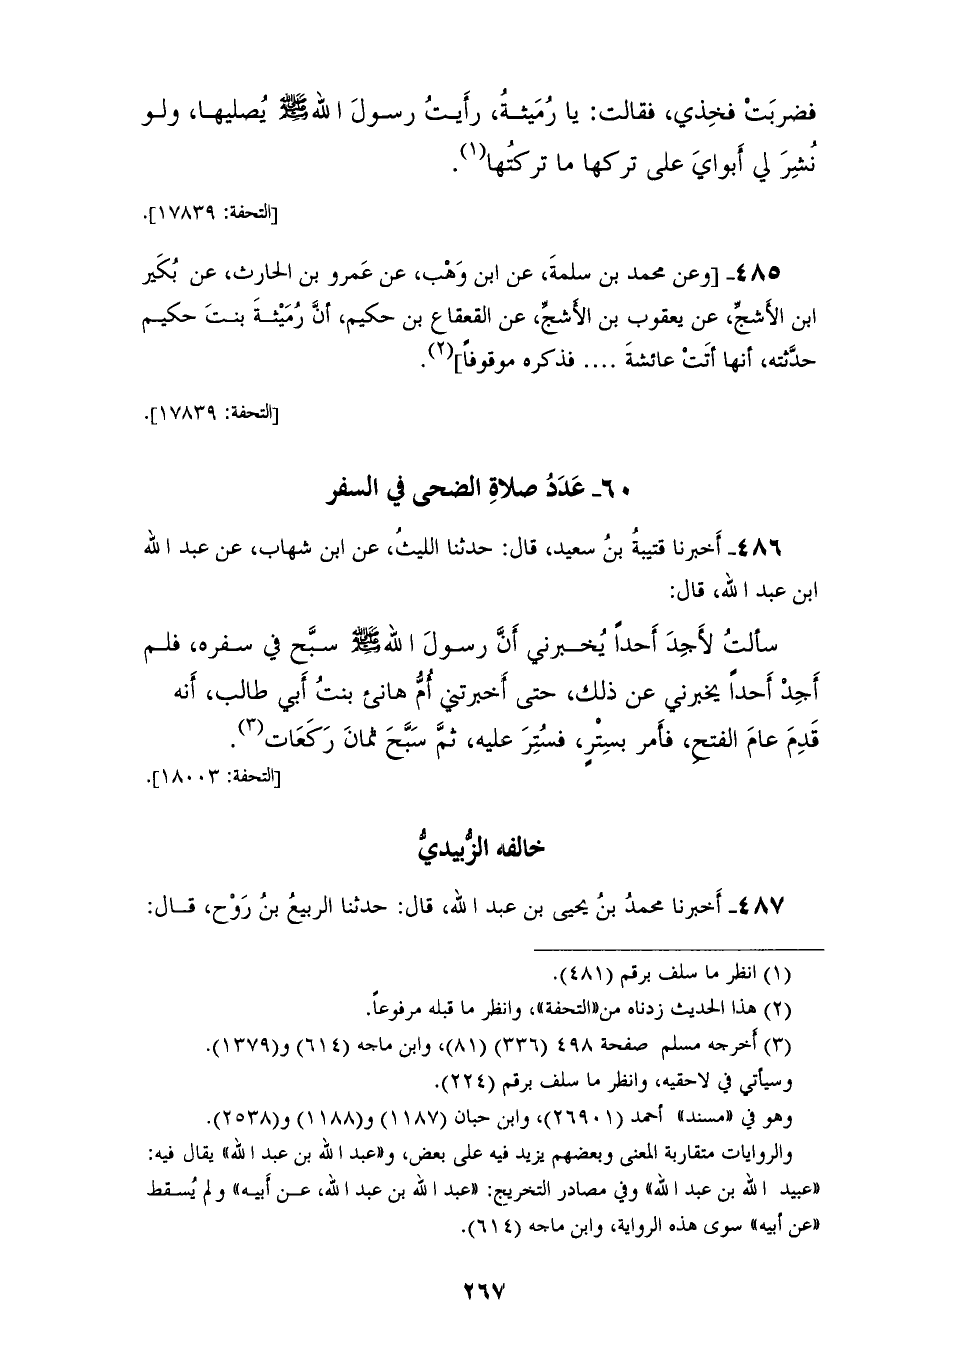 فضربَتْ فخِذي، فقالت: يا رُمَيثةُ، رأَيتُ رسولَ الله ﷺ يُصليها، ولو
نُشِرَ لي أَبوايَ على تركها ما تركتُها(١).
[التحفة: ١٧٨٣٩].
٤٨٥ـ [وعن محمد بن سلمةَ، عن ابن وَهْب، عن عَمرو بن الحارث، عن بُكَير
ابن الأَشجِّ، عن يعقوب بن الأَشجِّ، عن القعقاع بن حكيم، أنَّ رُمَيْثةَ بنتَ حكيم
حدَّثته، أنها أتَتْ عائشةَ .... فذكره موقوفاً](٢).
[التحفة: ١٧٨٣٩].
٦٠ـ عَدَدُ صلاةِ الضحى في السفر
٤٨٦ـ أَخبرنا قتيبةُ بنُ سعيد، قال: حدثنا الليثُ، عن ابن شهاب، عن عبد الله
ابن عبد الله، قال:
سألتُ لأَجِدَ أَحداً يُخبرني أَنَّ رسولَ الله ﷺ سبَّح في سفره، فلم
أَجِدْ أَحداً يخبرني عن ذلك، حتى أَخبرتني أُمُّ هانئ بنتُ أبي طالب، أَنه
قَدِمَ عامَ الفتحِ، فأَمر بسِتْرٍ، فسُتِرَ عليه، ثمَّ سَبَّحَ ثمانَ رَكَعَات(٣).
[التحفة: ١٨٠٠٣].
خالفه الزُّبيديُّ
٤٨٧ـ أَخبرنا محمدُ بنُ يحيى بن عبد الله، قال: حدثنا الربيعُ بنُ رَوْح، قال:
(١) انظر ما سلف برقم (٤٨١).
(٢) هذا الحديث زدناه من«التحفة»، وانظر ما قبله مرفوعاً.
(٣) أَخرجه مسلم صفحة ٤٩٨ (٣٣٦) (٨١)، وابن ماجه (٦١٤) و(١٣٧٩).
وسيأتي في لاحقيه، وانظر ما سلف برقم (٢٢٤).
وهو في «مسند» أحمد (٢٦٩٠١)، وابن حبان (١١٨٧) و(١١٨٨) و(٢٥٣٨).
والروايات متقاربة المعنى وبعضهم يزيد فيه على بعض، و«عبد الله بن عبد الله» يقال فيه:
«عبيد الله بن عبد الله» وفي مصادر التخريج: «عبد الله بن عبد الله، عن أَبيه» ولم يُسقط
«عن أبيه» سوى هذه الرواية، وابن ماجه (٦١٤).
٢٦٧